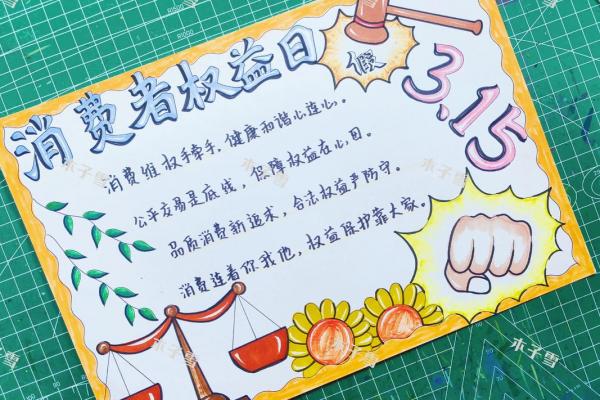 消费者权益日
假
3.15
消费维权手牵手，健康和谐心连心。
公平交易是底线，保障权益在心目。
品质消费新追求，合法权益严防守。
消费连着你我他，权益保护靠大家。
木子雪